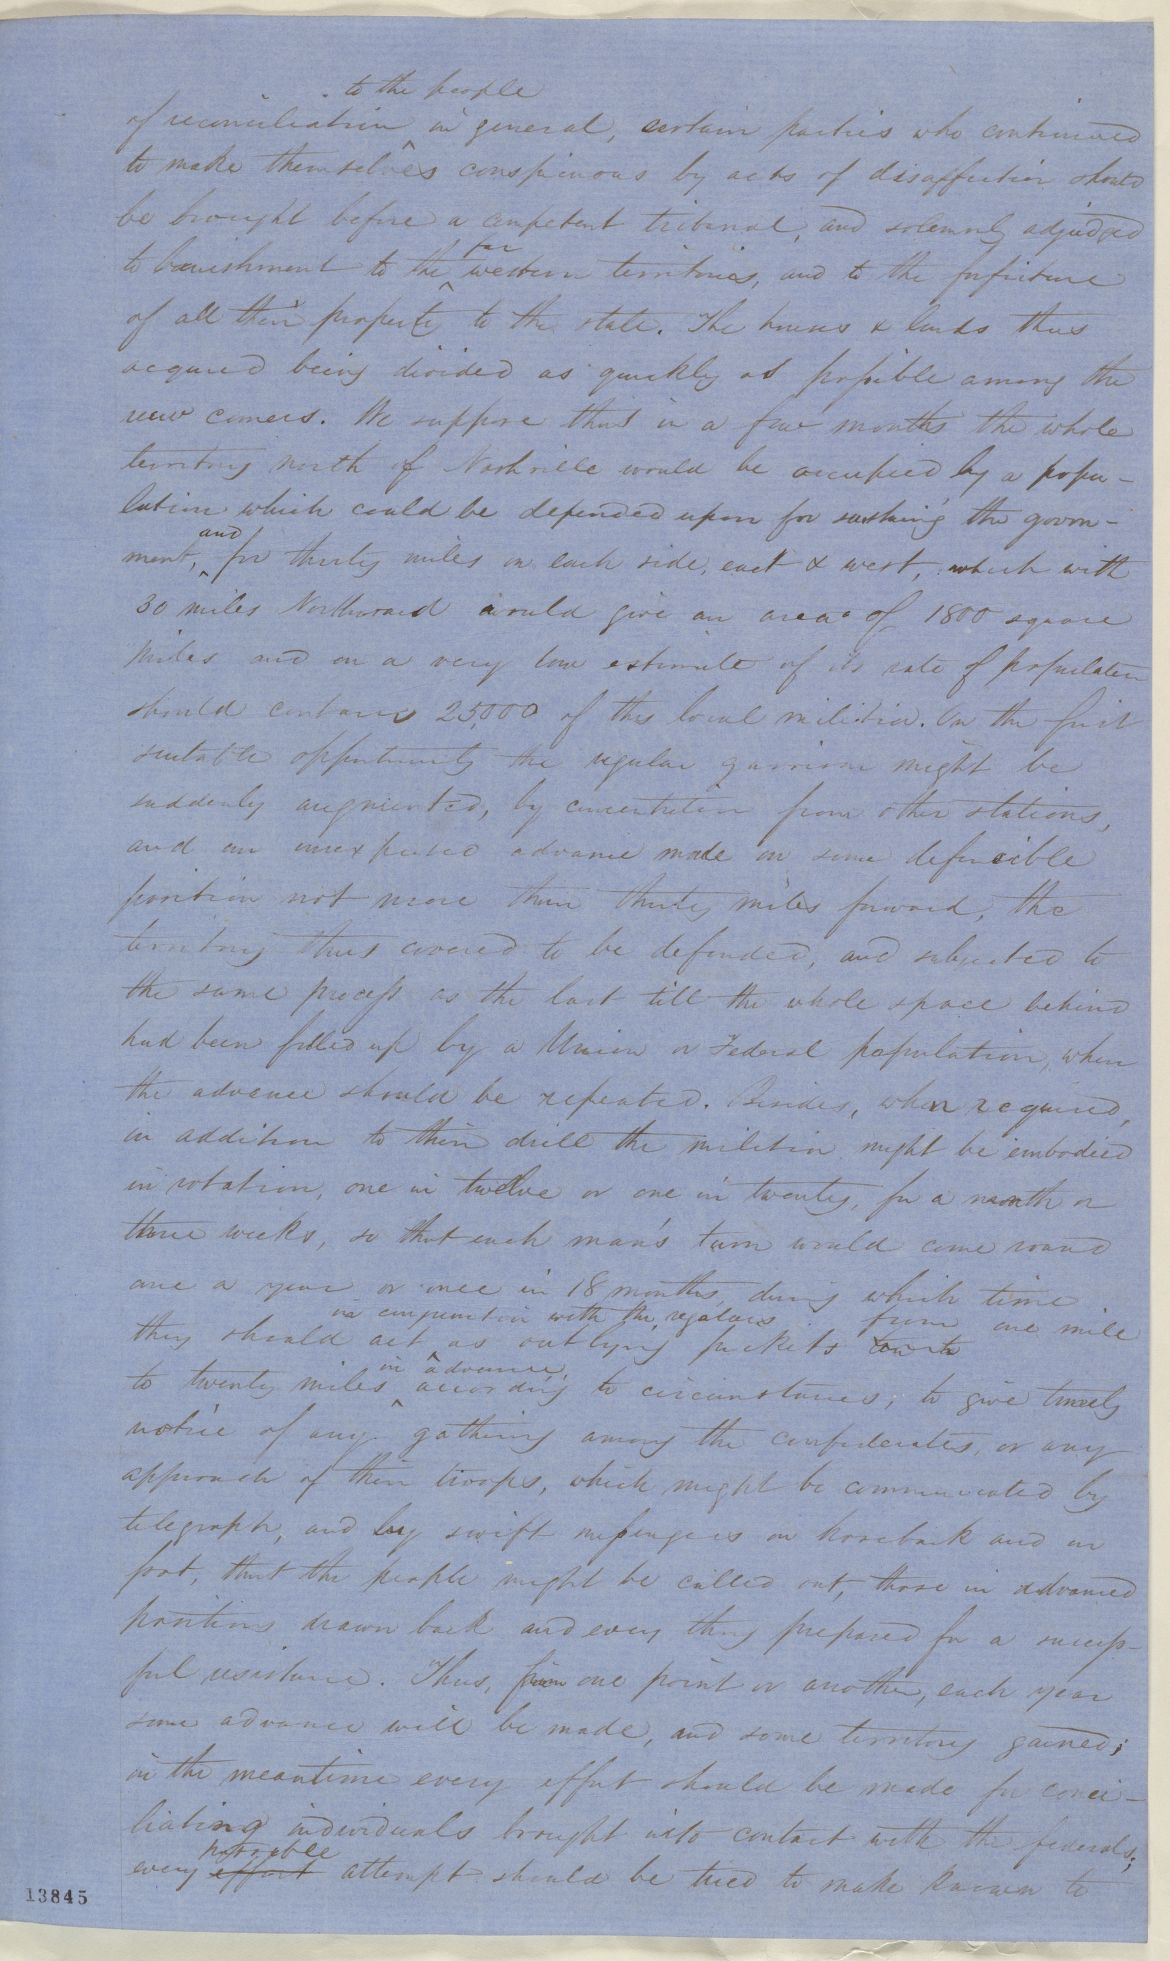 to the people
of reconciliation in general, certain parties who continued
to make themselves conspicuous by acts of disaffection should
be brought before a competent tribunal, and solemnly adjudged
far
to banishment to the western territories, and to the forfeiture
of all their property to the state. The houses & lands thus
acquired being divided as quickly as possible among the
new comers. We suppose thus in a few months the whole
territory north of Nashville would be occupied by a popu-
lation which could be depended upon for sustaing the govern-
and
ment, for thirty miles on each side, east & west, which with
30 miles Northward would give an area of 1800 square
miles and on a very low estimate of its rate of population
should contain 25,000 of this local militia. On the first
suitable opportunity the regular garrison might be
suddenly augmented, by concentration from other stations,
and an unexpected advance made on some defencible
position not more than thirty miles forward, the
territory thus covered to be defended, and subjected to
the same process as the last till the whole space behind
had been filled up by a Union or Federal population, when
the advance should be repeated. Besides, when required,
in addition to their drill the militia might be embodied
in rotation, one in twelve or one in twenty, for a month or
three weeks, so that each man's turn would come round
once a year or once in 18 months, during which time
in conjunction with the regulars from one mile
they should act as outlying pickets
in advance
to twenty miles according to circumstances, to give timely
notice of any gathering among the confederates, or any
approach of their troops, which might be communicated by
telegraph, and by swift messengers on horseback and on
foot, that the people might be called out, those in advanced
positions drawn back and every thing prepared for a success-
ful resistance. Thus, from one point or another, each year
some advance will be made, and some territory gained;
in the meantime every effort should be made for conci-
liating individuals brought into contact with the federals;
every effort attempt should be tried to make known to
13845